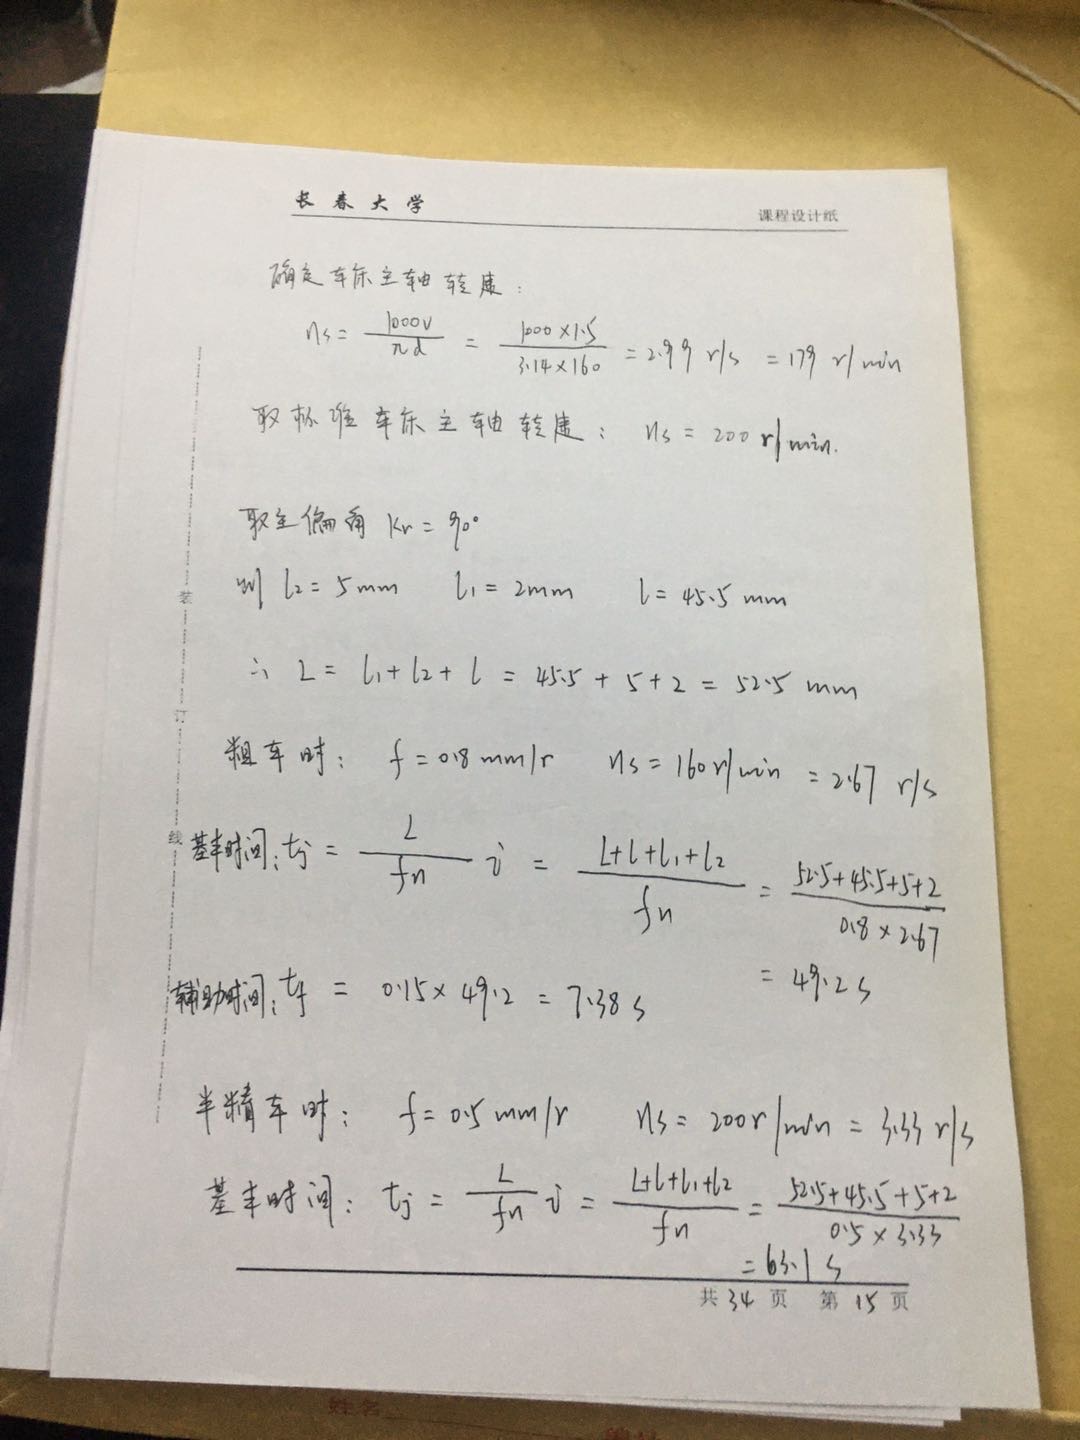 长春大学
课程设计纸
确定车床主轴转速:
ns = 1000v/πd = 1000×1.5/3.14×160 = 2.99 r/s = 179 r/min
取标准车床主轴转速: ns = 200 r/min.
取主偏角 kr = 90°
则 l2 = 5mm l1 = 2mm l = 45.5 mm
∴ L = l1 + l2 + l = 45.5 + 5 + 2 = 52.5 mm
粗车时: f = 0.8 mm/r ns = 160 r/min = 2.67 r/s
基本时间: tj = L/fn i = L+l+l1+l2/fn = 52.5+45.5+5+2/0.8×2.67
= 49.2 s
辅助时间: tf = 0.15 × 49.2 = 7.38 s
半精车时: f = 0.5 mm/r ns = 200 r/min = 3.33 r/s
基本时间: tj = L/fn i = L+l+l1+l2/fn = 52.5+45.5+5+2/0.5×3.33
= 63.1 s
共 34 页 第 15 页
装
订
线
姓名